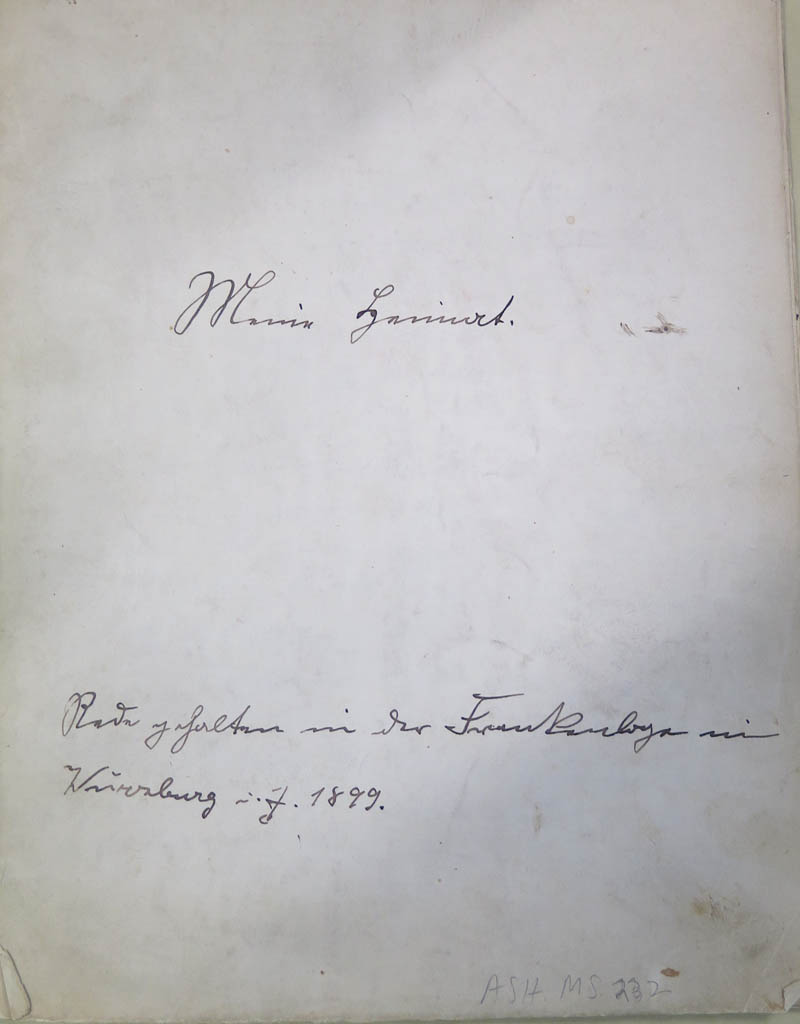 Meine Heimat.
Rede gehalten in der Frankenloge in
Würzburg i. J. 1899.
ASH MS 232